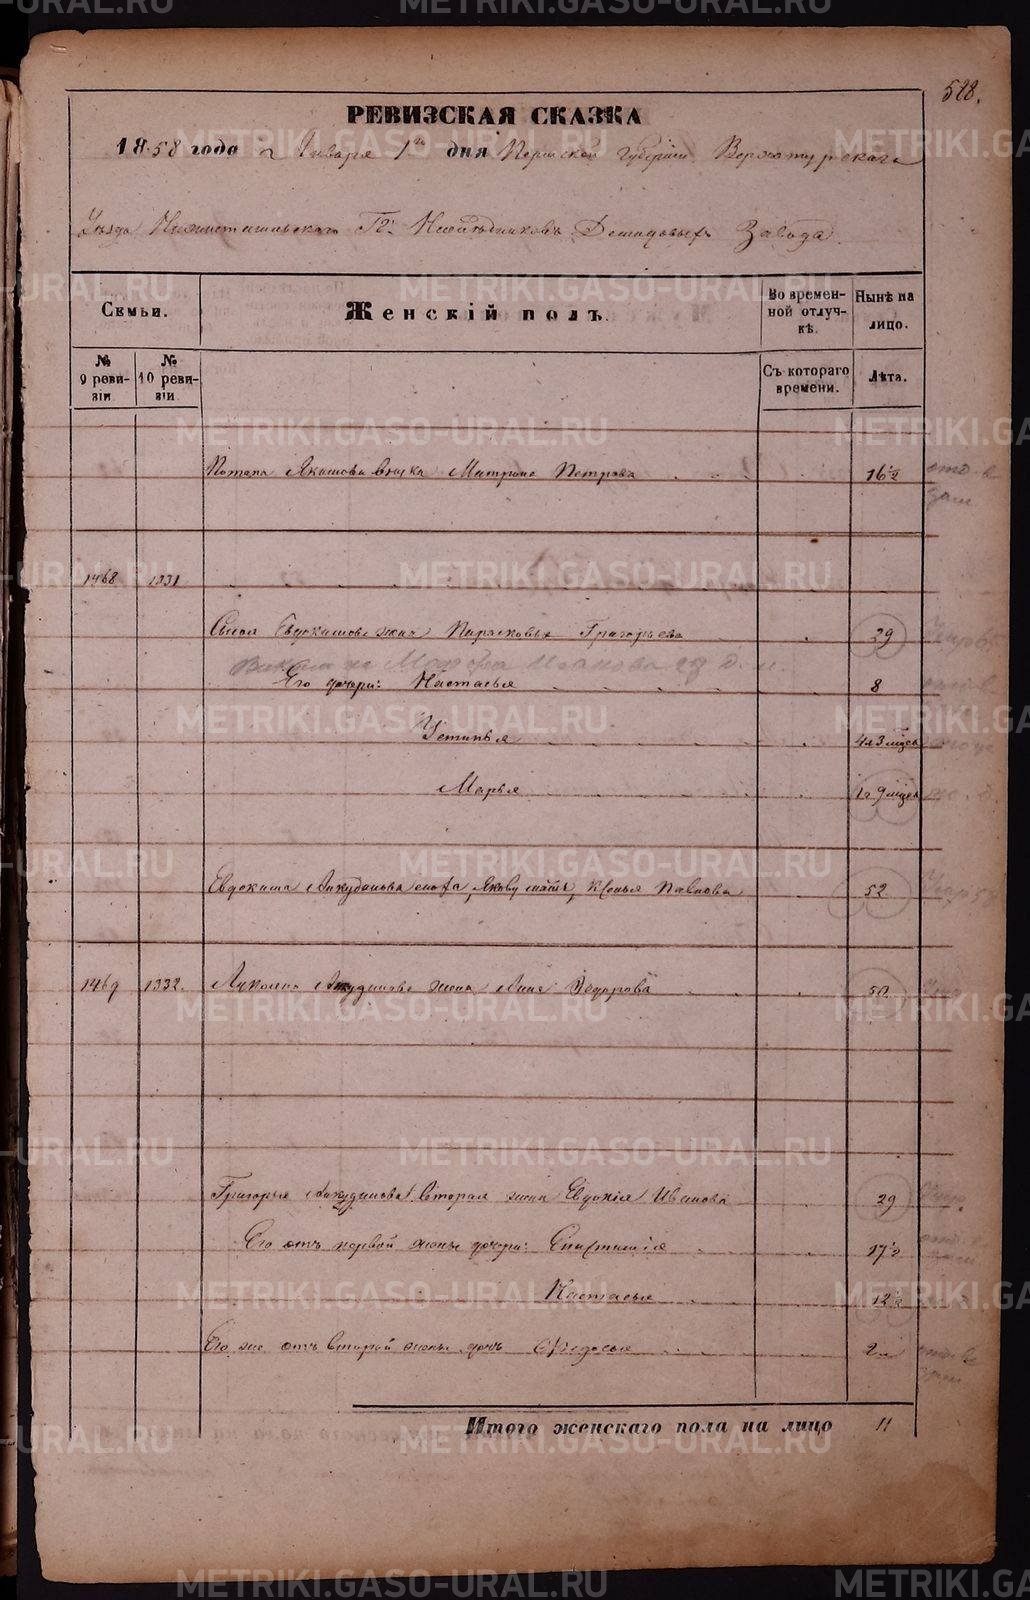 528.
РЕВИЗСКАЯ СКАЗКА
1858 года Января 1го дня Пермской губернии Верхотурскаго
Уѣзда Нижнетагильскаго Гг. Наслѣдниковъ Демидовыхъ Завода.
Семьи.
Женскій полъ.
Во времен-
ной отлуч-
кѣ.
Нынѣ на
лицо.
№
9 реви-
зіи
№
10 реви-
зіи
Съ котораго
времени.
Лѣта.
Потапа Якимова внучка Матрона Петрова 16½
1468 1331
Евдокимова жена Парасковья Григорьева 29
Его дочери: Настасья 8
Устинья 4 л 3 мѣся
Марья 9 мѣся
Евдокима Анкудинова снохa, Якову мать, Ксенья Павлова 52
1469 1332. Анкудинова жена Анна Федорова 50
Григорья Анкудинова вторая жена Евдокія Иванова 29
Его отъ первой жены дочери: 17½
Настасья 12½
Его же отъ второй жены дочь Федосья 2
Итого женскаго пола на лицо 11
METRIKI.GASO-URAL.RU